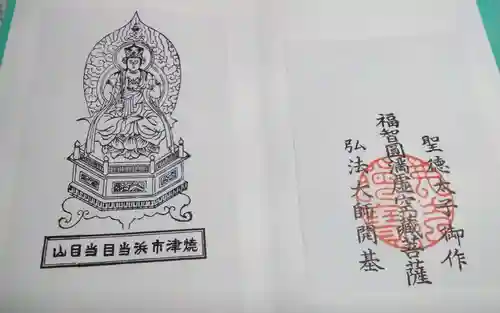 聖徳太子御作
福智圓満虚空藏菩薩
弘法大師開基
焼津市浜当目当目山